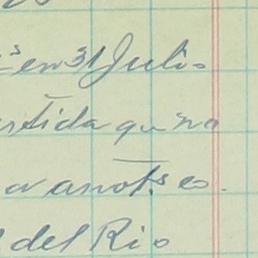 en 31 Julio
rtida que no
a anots es.
del Rio